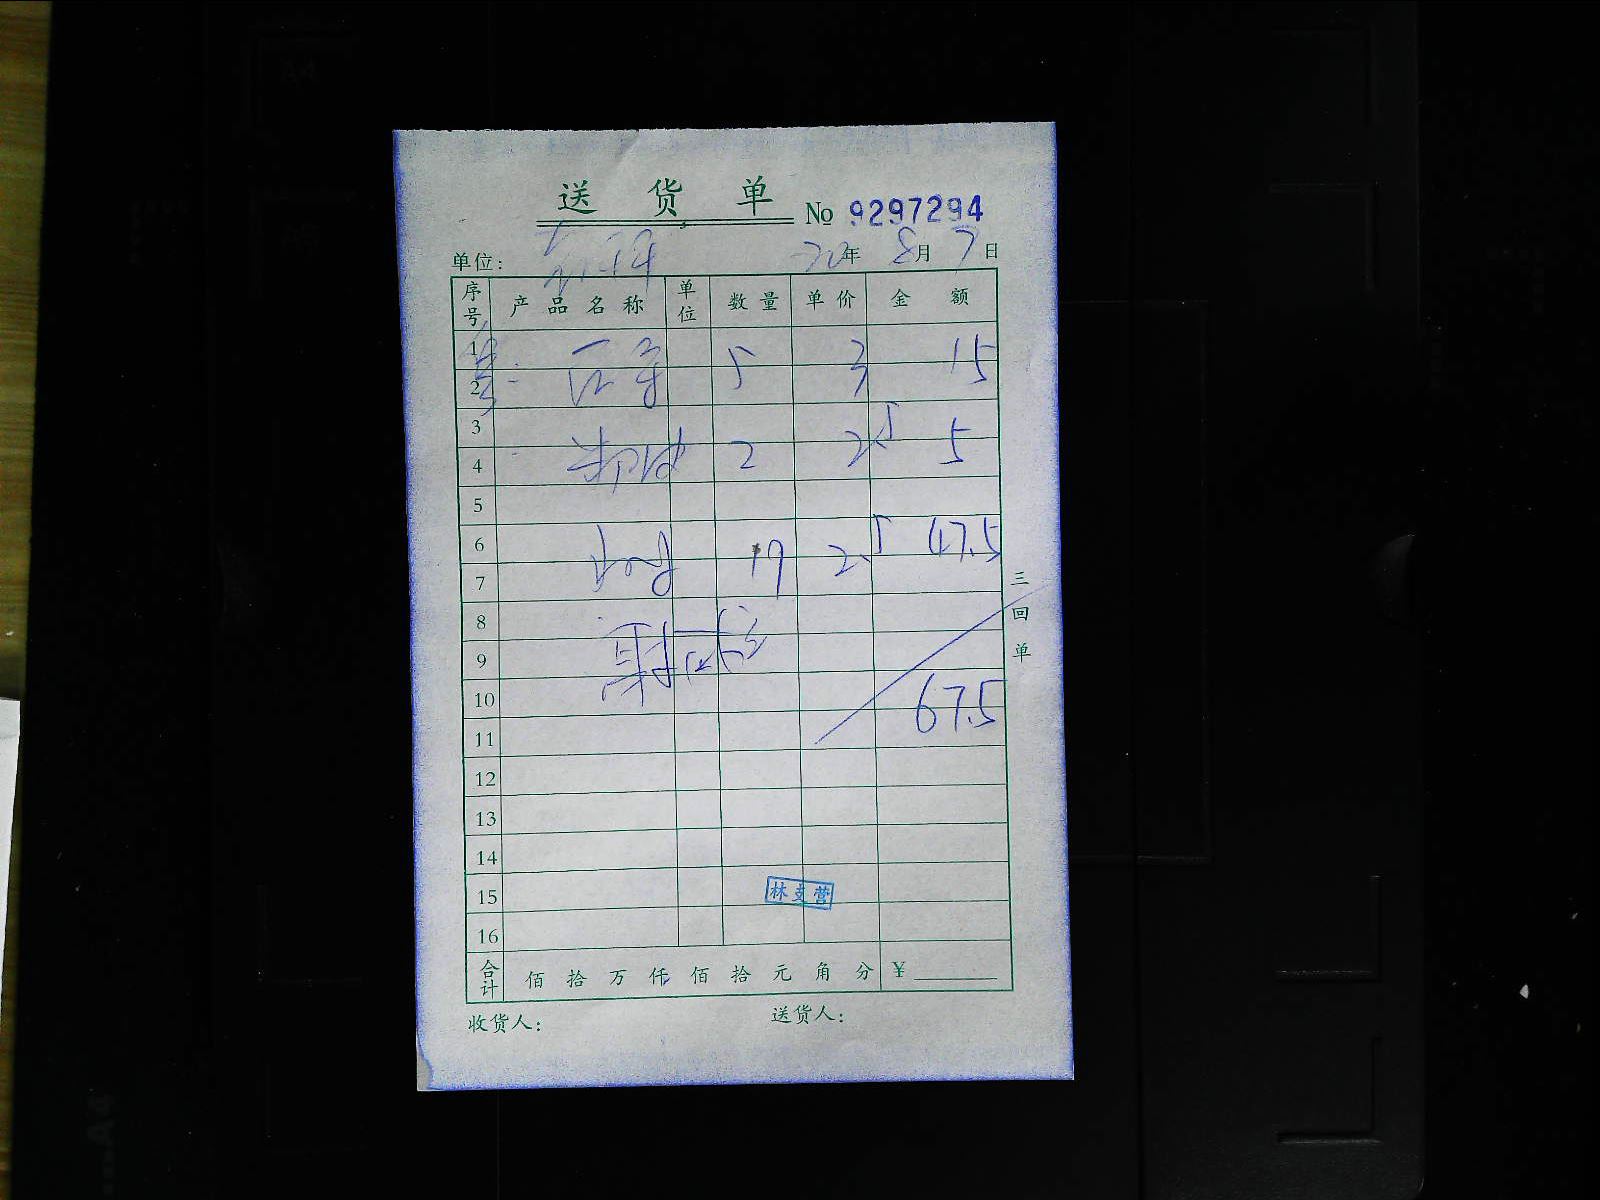 送货单
No 9297294
单位: 20年 8月 7日
序号 产品名称 单位 数量 单价 金额
1 5 3 15
2
3
4 2 2.5 5
5
6
7 19 2.5 47.5
8
9
10 67.5
11
12
13
14
15 林支营
16
合计 佰 拾 万 仟 佰 拾 元 角 分 ¥
收货人: 送货人:
三回单